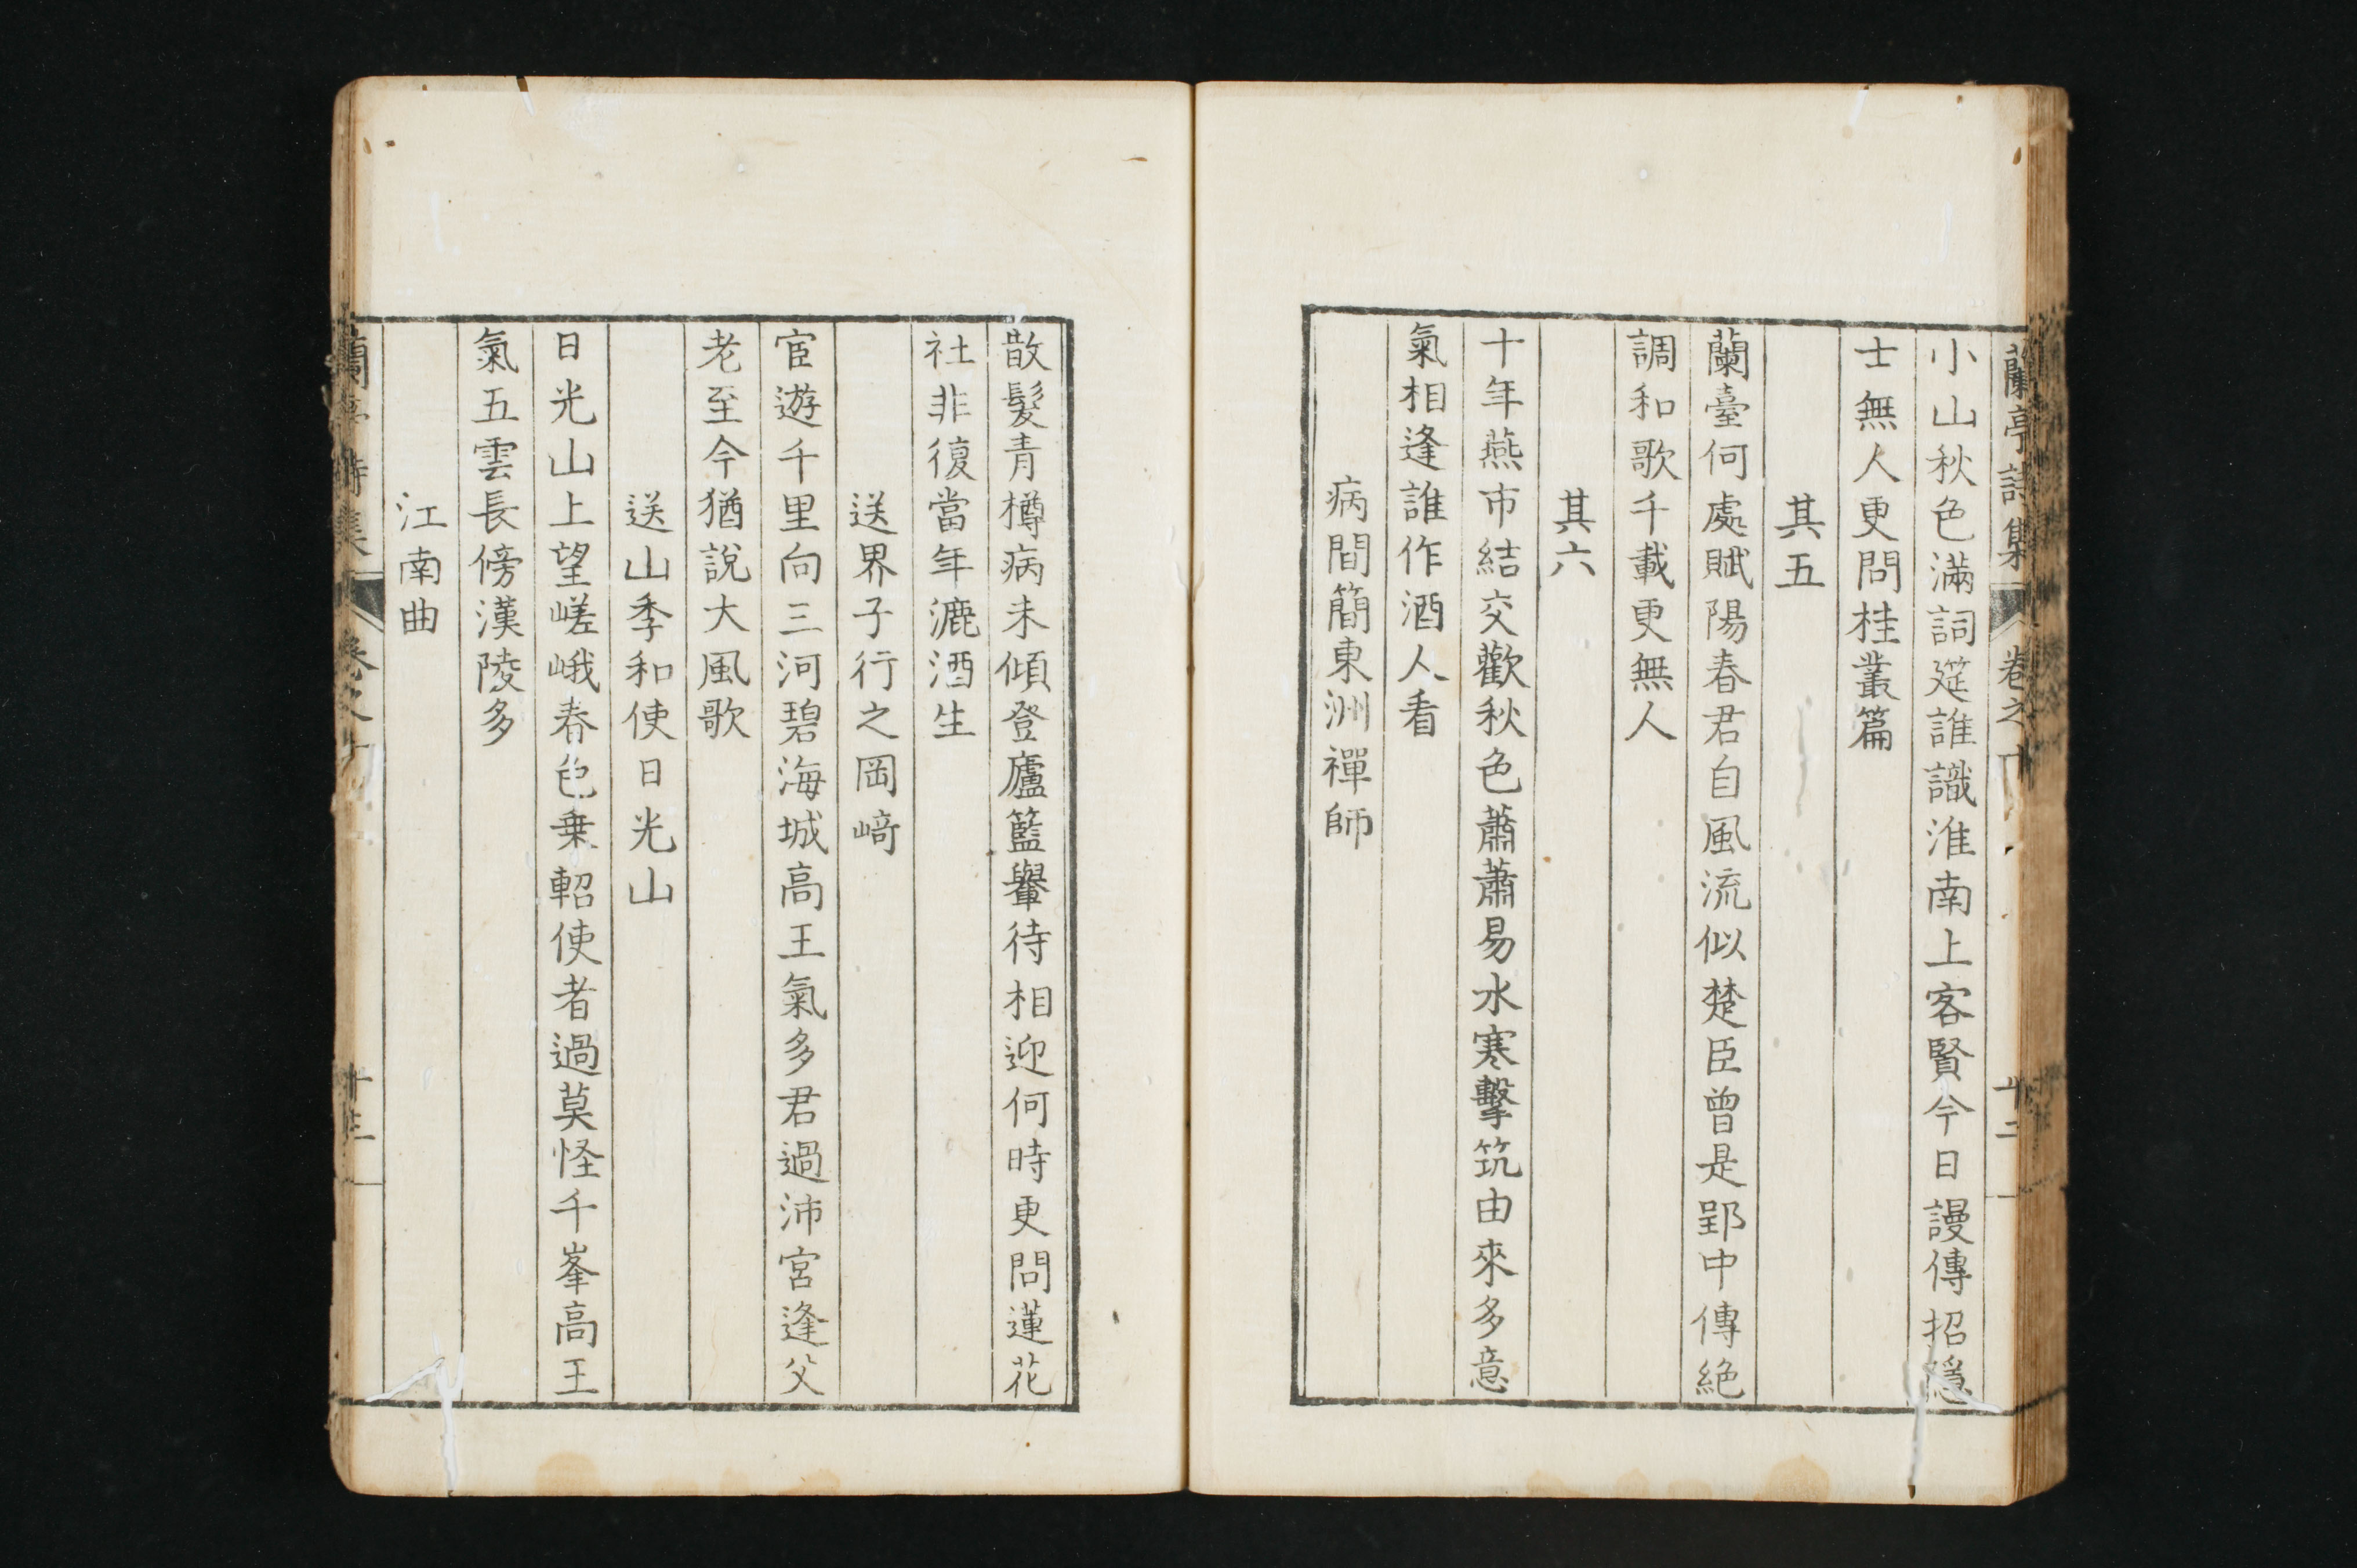 蘭亭詩集 卷之十 十二
小山秋色滿詞筵誰識淮南上客賢今日謾傳招隱
士無人更問桂叢篇
其五
蘭臺何處賦陽春君自風流似楚臣曾是郢中傳絕
調和歌千載更無人
其六
十年燕市結交歡秋色蕭蕭易水寒擊筑由來多意
氣相逢誰作酒人看
病間簡東洲禪師
散髮青樽病未傾登廬籃轝待相迎何時更問蓮花
社非復當年漉酒生
送界子行之岡﨑
宦遊千里向三河碧海城高王氣多君過沛宮逢父
老至今猶說大風歌
送山季和使日光山
日光山上望嵯峨春色乗軺使者過莫怪千峯高王
氣五雲長傍漢陵多
江南曲
蘭亭詩集 卷之十 十三